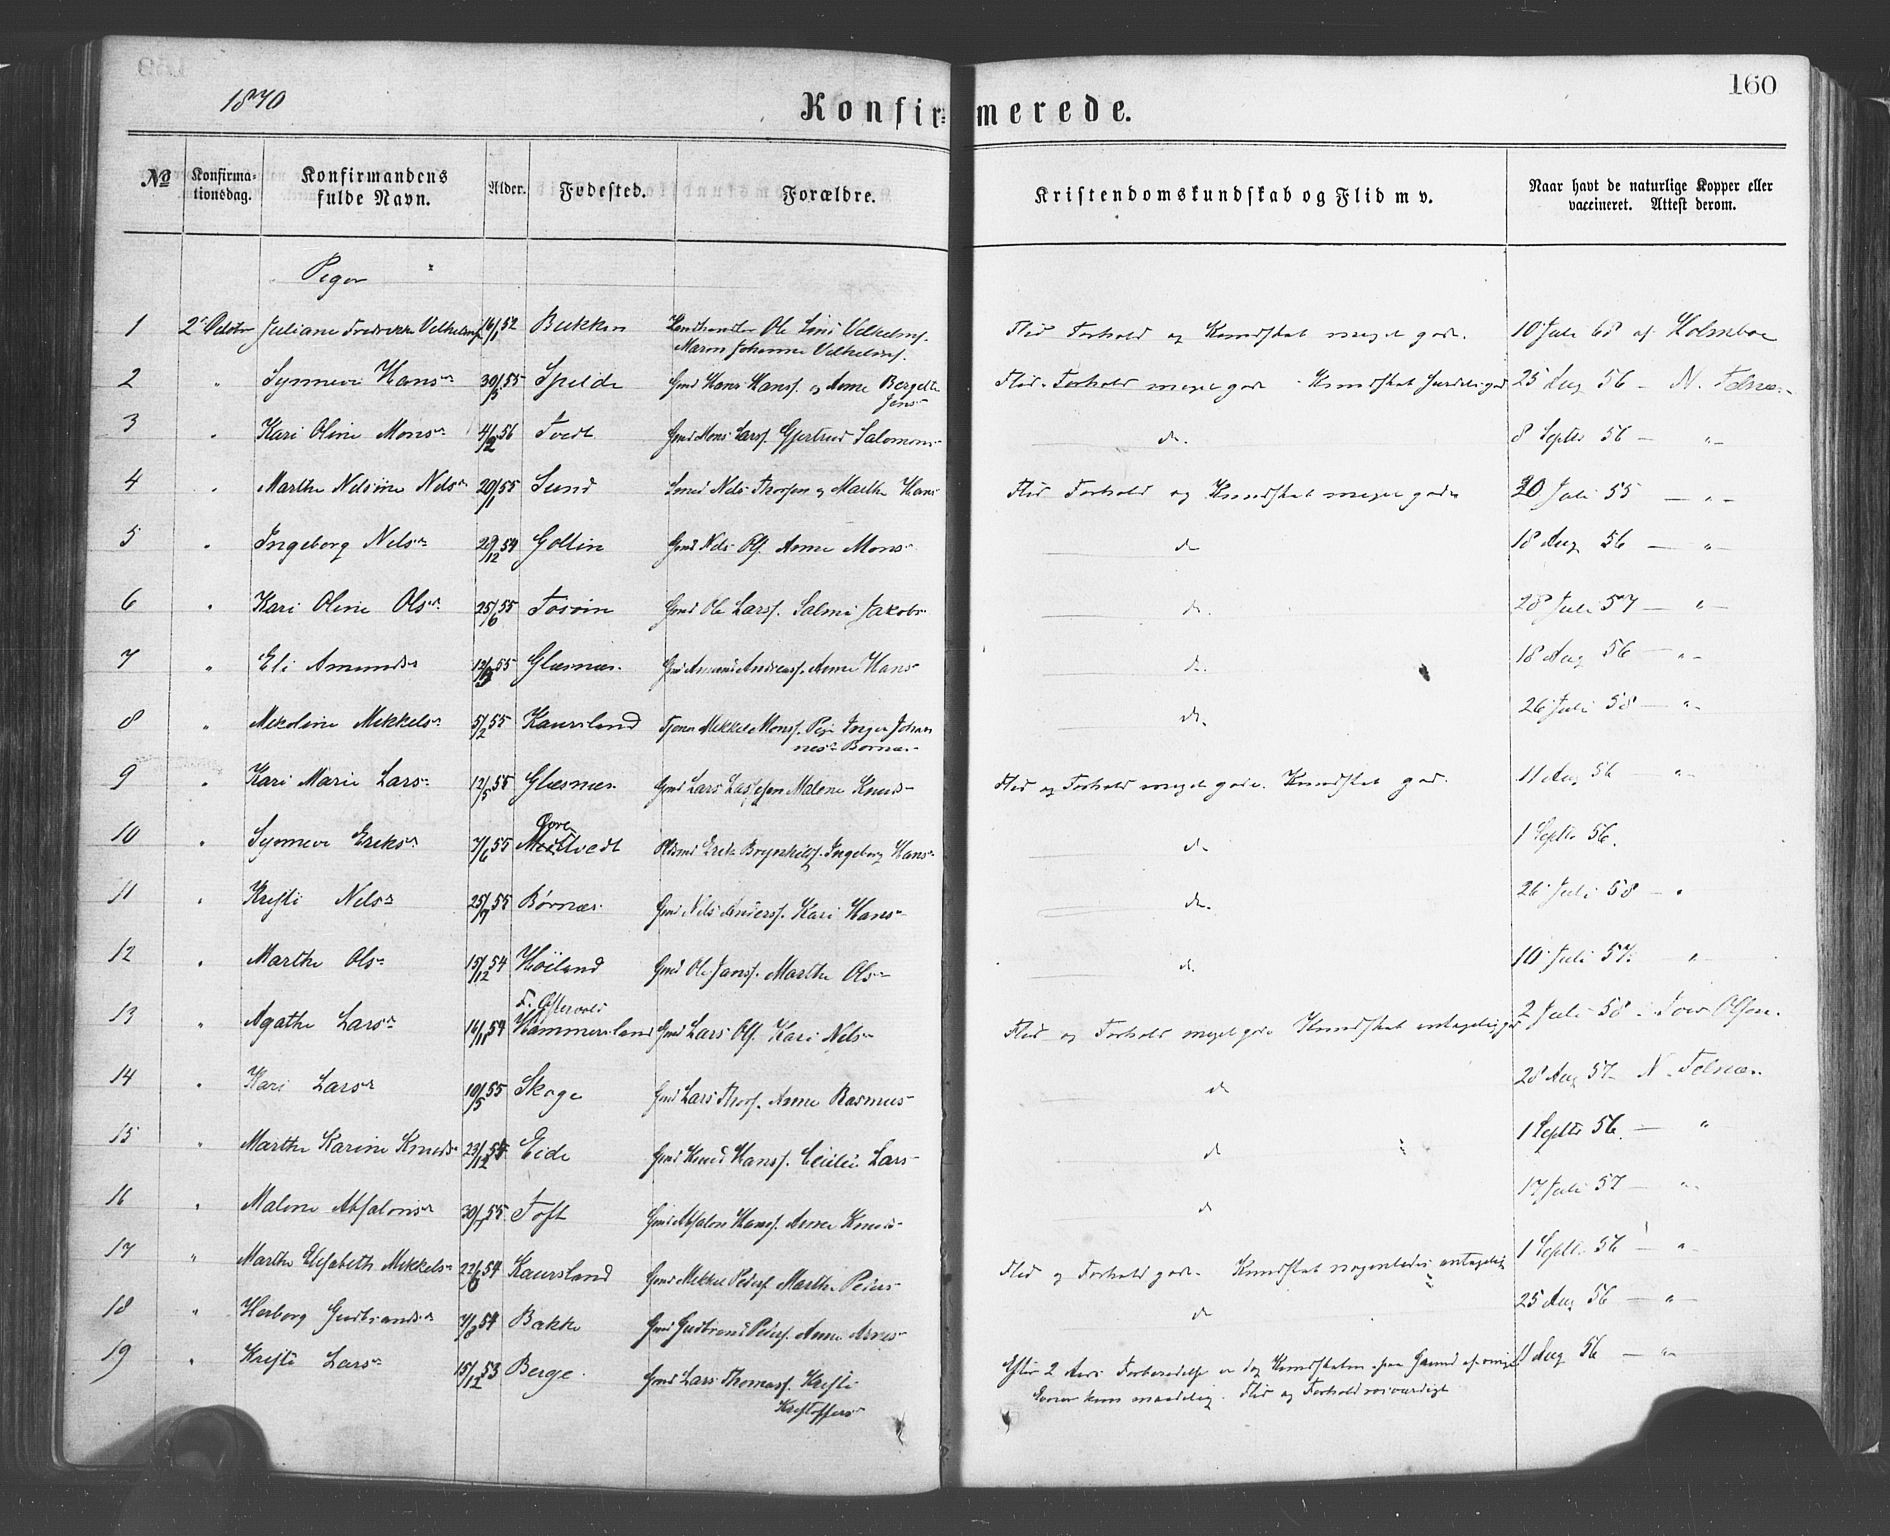 1870
Konfirmerede.
160
№ Konfirmationsdag. Konfirmandens fulde Navn. Alder. Fødested. Forældre. Kristendomskundskab og Flid m v. Naar havt de naturlige Kopper eller vaccineret. Attest derom.
Piger
1 2 Juliane Fredrikke Vilhelms 16/1 52 Bukken Ole Vilhelms. Flid Forhold og Kundskab meget gode. 10 Juli 68 af Holmboe
Maren Johanne Vilhelms.
2 " Synneve Hans 30/5 55 Spilde Gmd Hans Hanss. og Anne Bergitte Flid Forhold meget gode Kundskab 25 Aug 56 - N.
Jens
3 " Kari Oline Mons 4/2 56 Tvedt Gmd Mons Larss. Gjertrud Salomons do. 8 Septbr 56 - " -
4 " Marthe Nelsine Nels 20/1 55 Sund Nels Thorsen og Marthe Hans Flid Forhold og Kundskab meget gode 20 Juli 55 - " -
5 " Ingeborg Nels 29/12 54 Goltin Gmd Nels Ols. Anne Mons do 18 Aug 56 - " -
6 " Kari Oline Ols 25/6 55 Gmd Ole Larss. Salmi Jakobs do. 28 Juli 57 - " -
7 " Eli Amunds 12/3 55 Glæsnæs Gmd Amund Andreass. Anne Hans do. 18 Aug 56 - " -
8 " Mikoline Mikkels 5/2 55 Kaursland Tjener Mikkel Monss. Pige Inger Johan do. 26 Juli 58 - " -
nes Børnæs
9 " Kari Marie Lars 12/5 55 Glæsnæs Gmd Lars Malene Knuds Flid og Forhold meget gode. Kundskab god. 11 Aug 56 - " -
Øvre
10 " Synneve Eriks 7/6 55 Erik Brynhilds. Ingeborg Hans do 1 Septbr 56.
11 " Kristi Nels 25/7 55 Børnæs Gmd Nels Anderss. Kari Hans do. 26 Juli 58 - "
12 " Marthe Ols 15/12 54 Høiland Gmd Ole Janss. Marthe Ols do. 10 Juli 57. "
F. Østervold
13 " Agathe Lars 14/11 54 Hammersland Gmd Lars Ols. Kari Nels Flid og Forhold meget gode Kundskab 2 Juli 58 - Olsen.
14 " Kari Lars 10/5 55 Skoge Gmd Lars Thors. Anne Rasmus do 28 Aug 57 - N.
15 " Marthe Karine Knuds 23/12 54 Eide Gmd Knud Hanss. Cecilie Lars do 1 Septbr 56. - "
16 " Malene Absalons 30/1 55 Toft Gmd Absalon Hanss. Anne Knuds do 17 Juli 57 - " -
17 " Marthe Elisabeth Mikkels 22/6 54 Kaursland Gmd Mikkel Peders. Marthe Peders Flid og Forhold gode. Kundskab nogenledes antagelig 1 Septbr 56 - "
18 " Herborg Gudbrands 7/8 54 Bakke Gmd Gudbrand Peders. Anne Arnes do 25 Aug 56 - " -
19 " Kristi Lars 15/12 53 Berge. Gmd Lars Thomass. Kristi Efter 2 Aars Forberedelse er dog Kundskaben paa Grund af 11 Aug 56 - " -
Kristoffers Evner kun maadelig. Flid og Forhold rosværdigt